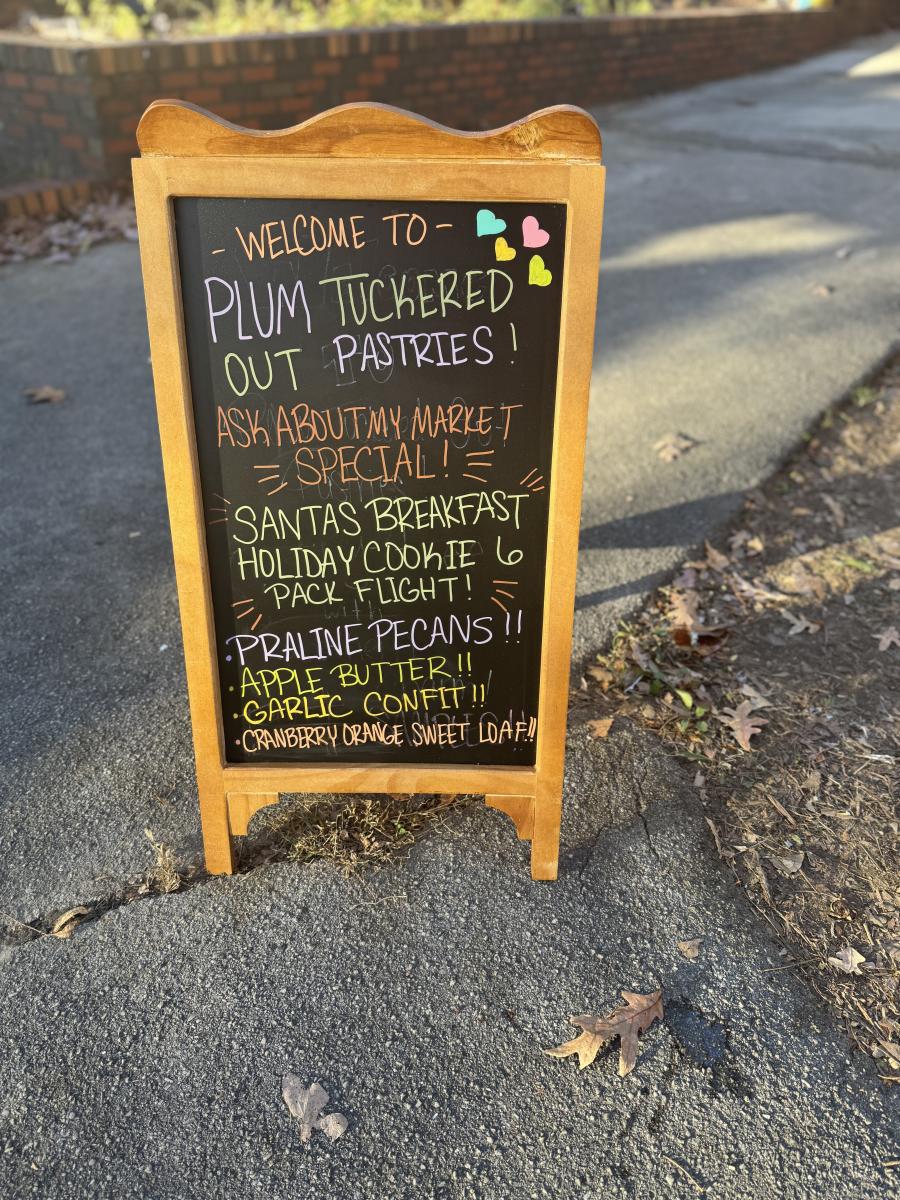 - WELCOME TO -
PLUM TUCKERED
OUT PASTRIES !
ASK ABOUT MY MARKET
SPECIAL!
SANTAS BREAKFAST
HOLIDAY COOKIE 6
PACK FLIGHT!
• PRALINE PECANS !!
• APPLE BUTTER!!
• GARLIC CONFIT!!
• CRANBERRY ORANGE SWEET LOAF!!